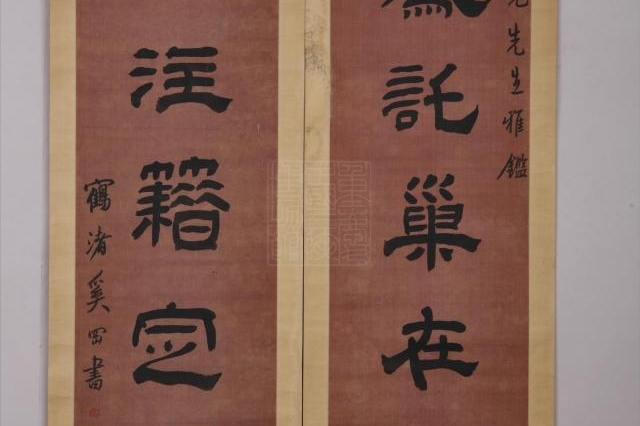 先生雅鑑
託巢在
注籍定
鶴渚奚冈書